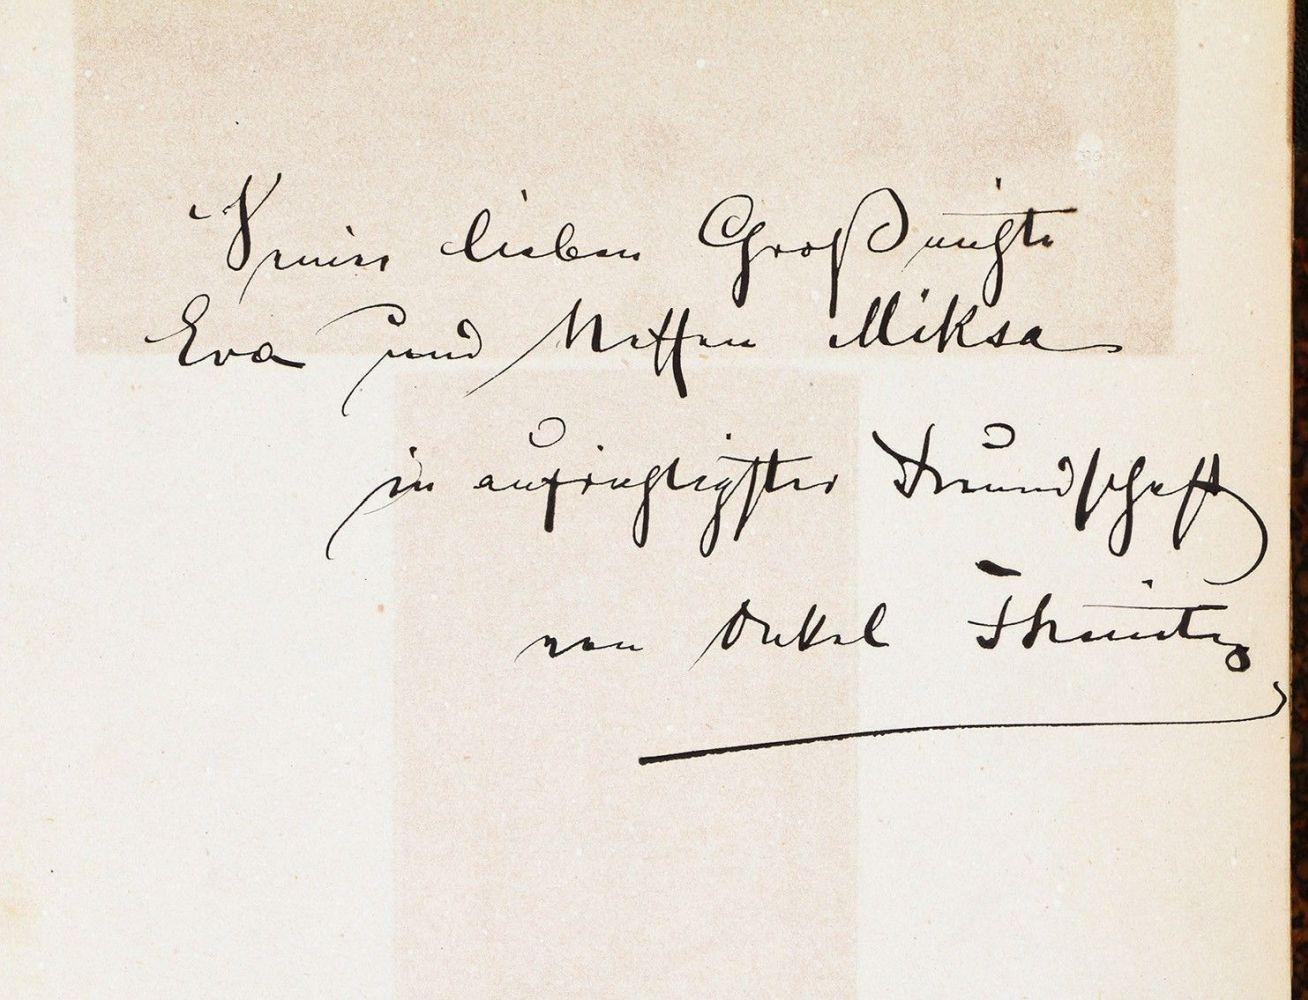 Seiner lieben Großnichte
Eva und Neffen Miksa
in aufrichtigster Freundschaft
von Onkel